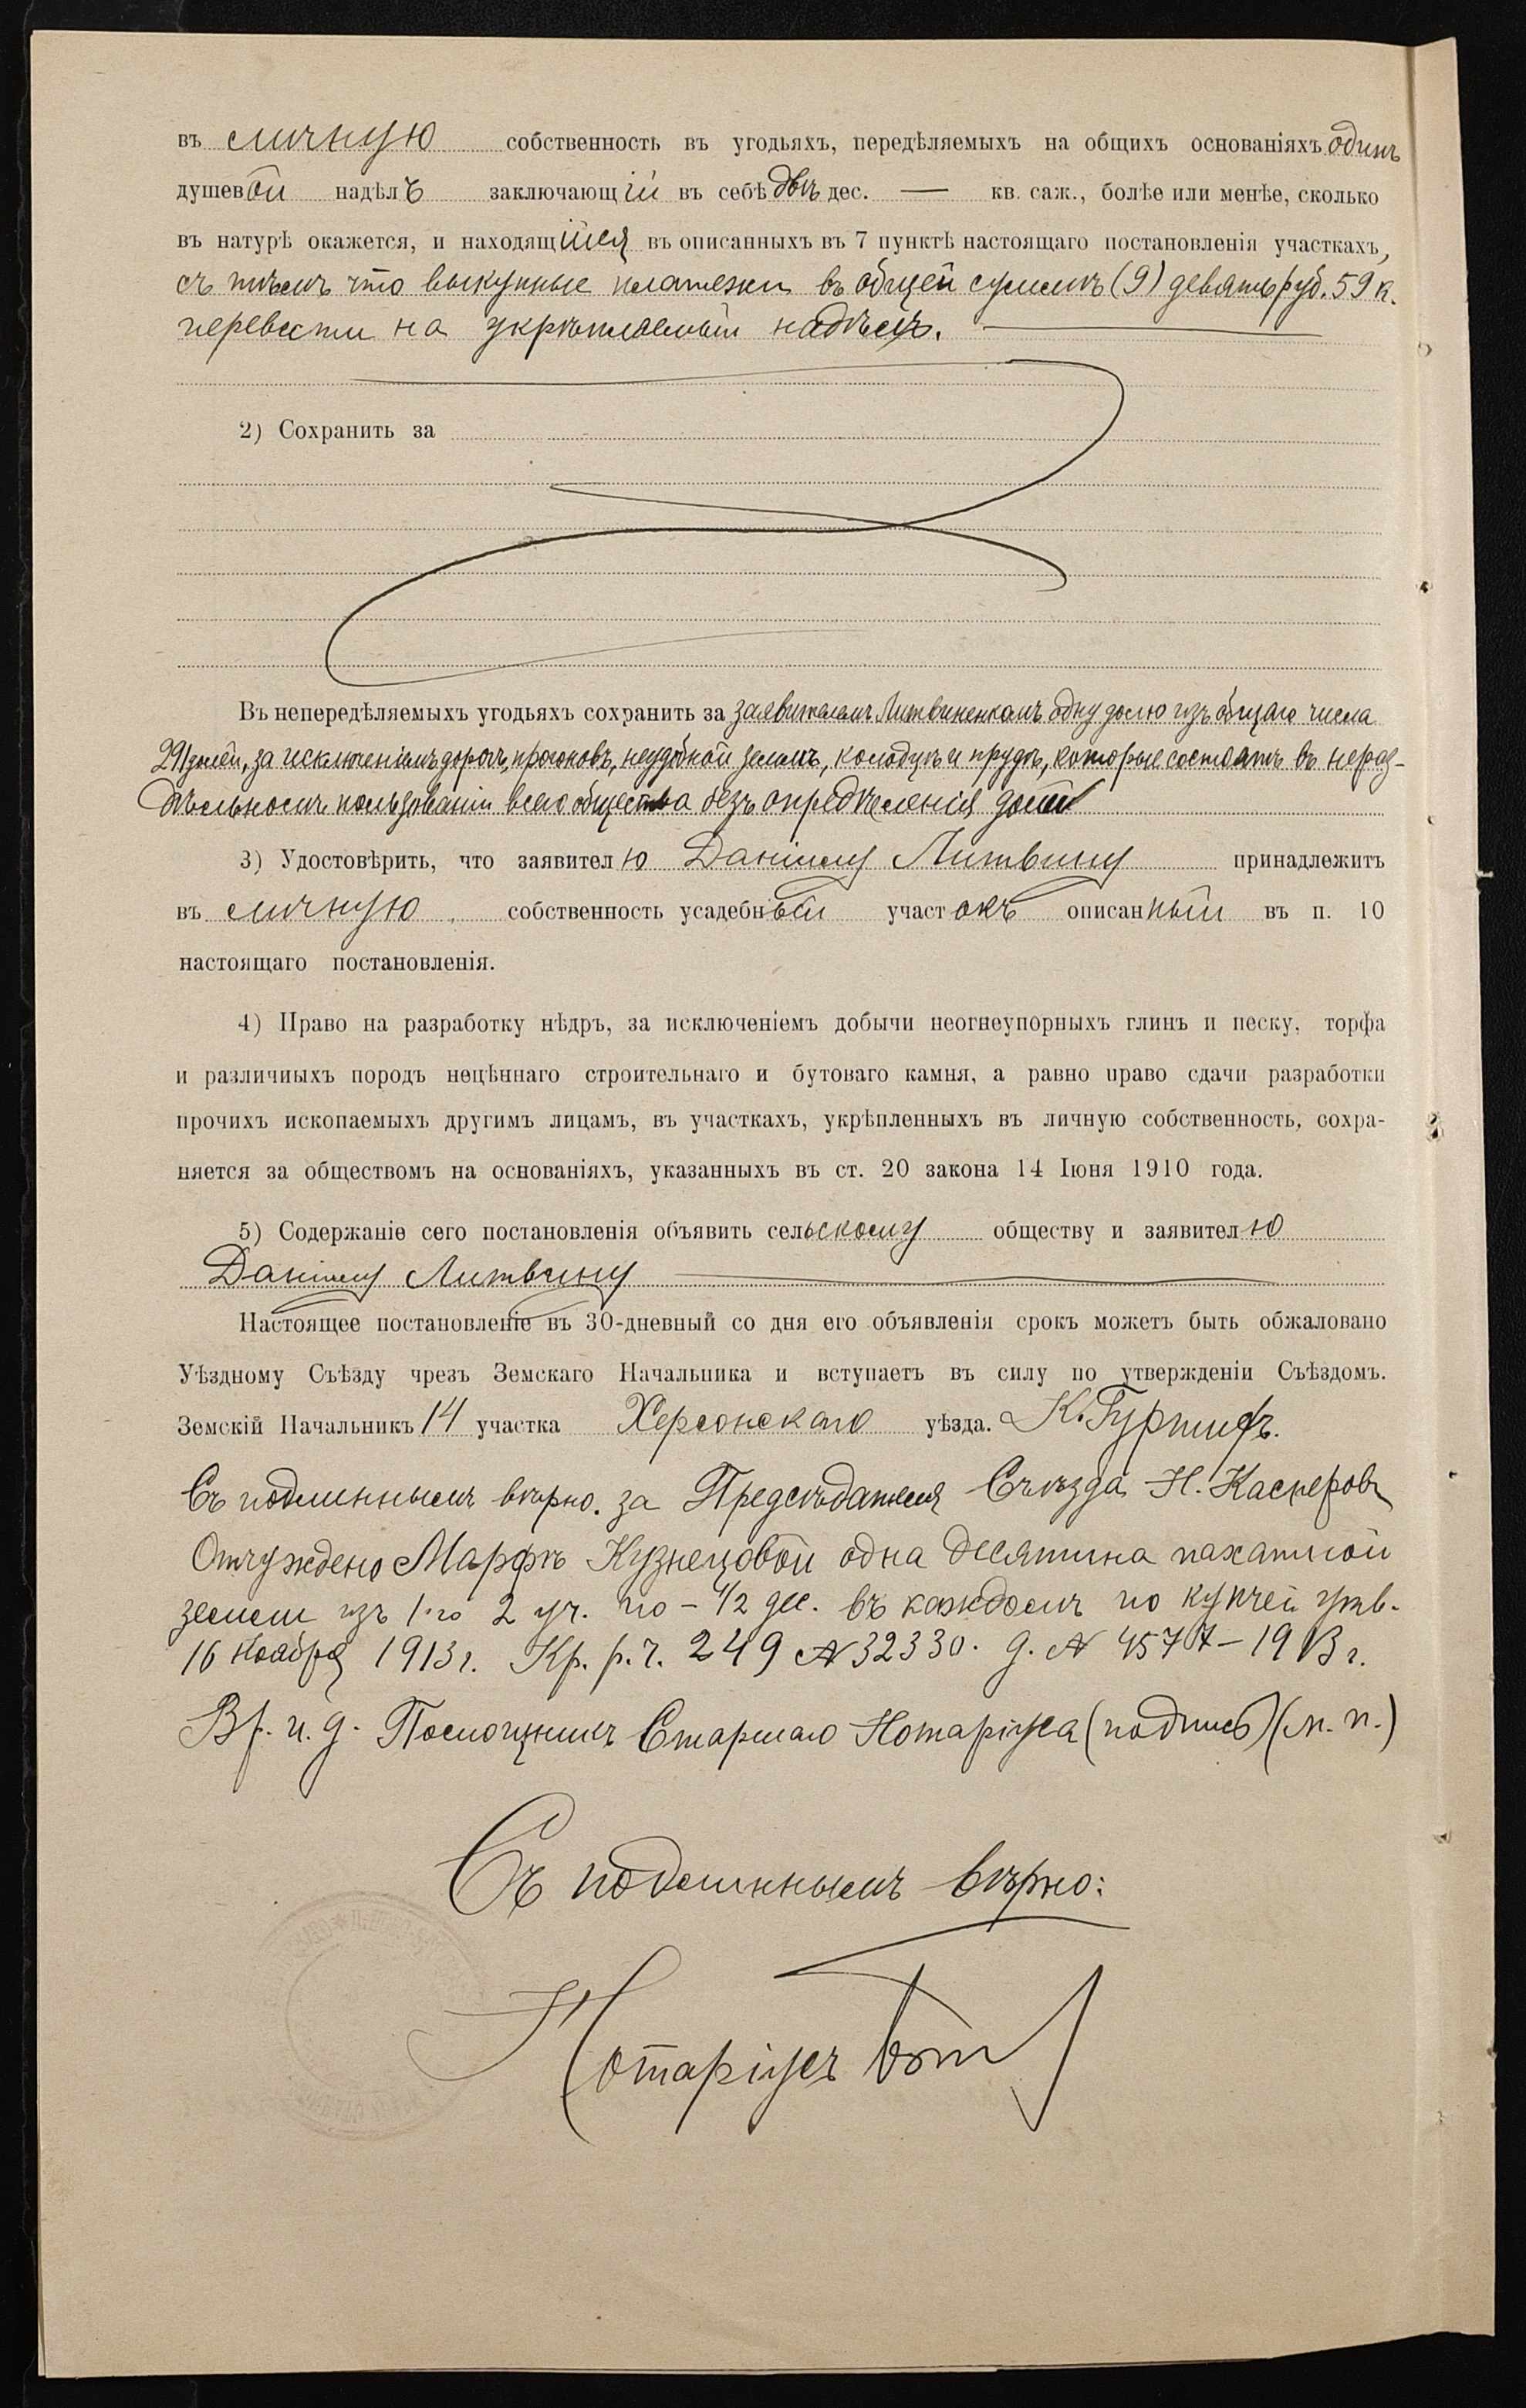 въ личную собственность въ угодьяхъ, передѣляемыхъ на общихъ основаніяхъ одинъ
душевой надѣлъ заключающій въ себѣ двѣ дес. — кв. саж., болѣе или менѣе, сколько
въ натурѣ окажется, и находящійся въ описанныхъ въ 7 пунктѣ настоящаго постановленія участкахъ,
съ тѣмъ что выкупные платежи въ общей суммѣ (9) девять руб. 59 к.
перевести на укрѣпляемый надѣлъ.
2) Сохранить за
Въ непередѣляемыхъ угодьяхъ сохранить за заявителемъ Литвиненкомъ одну долю изъ общаго числа
291 долей, за исключеніемъ дорогъ, прогоновъ, неудобной земли, колодцы и пруды, которые состоятъ въ нераз-
дѣльномъ пользованіи всего общества безъ опредѣленія долей
3) Удостовѣрить, что заявителю Даніилу Литвину принадлежитъ
въ личную собственность усадебный участокъ описанный въ п. 10
настоящаго постановленія.
4) Право на разработку нѣдръ, за исключеніемъ добычи неогнеупорныхъ глинъ и песку, торфа
и различныхъ породъ нецѣннаго строительнаго и бутоваго камня, а равно право сдачи разработки
прочихъ ископаемыхъ другимъ лицамъ, въ участкахъ, укрѣпленныхъ въ личную собственность, сохра-
няется за обществомъ на основаніяхъ, указанныхъ въ ст. 20 закона 14 Іюня 1910 года.
5) Содержаніе сего постановленія объявить сельскому обществу и заявителю
Даніилу Литвину
Настоящее постановленіе въ 30-дневный со дня его объявленія срокъ можетъ быть обжаловано
Уѣздному Съѣзду чрезъ Земскаго Начальника и вступаетъ въ силу по утвержденіи Съѣздомъ.
Земскій Начальникъ 14 участка Херсонскаго уѣзда. К.
Съ подлиннымъ вѣрно. за Предсѣдателя Съѣзда Н. Касперовъ
Отчуждено Марфѣ Кузнецовой одна десятина пахатной
земли изъ 1-го 2 уч. по – 1/2 дес. въ каждомъ по купчей утв.
16 Ноября 1913 г. Кр. р. ч. 249 № 32330. д. № 4577 – 1913 г.
Вр. и. д. Помощникъ Старшаго Нотаріуса (подпись) (м. п.)
Съ подлиннымъ вѣрно:
Нотаріусъ